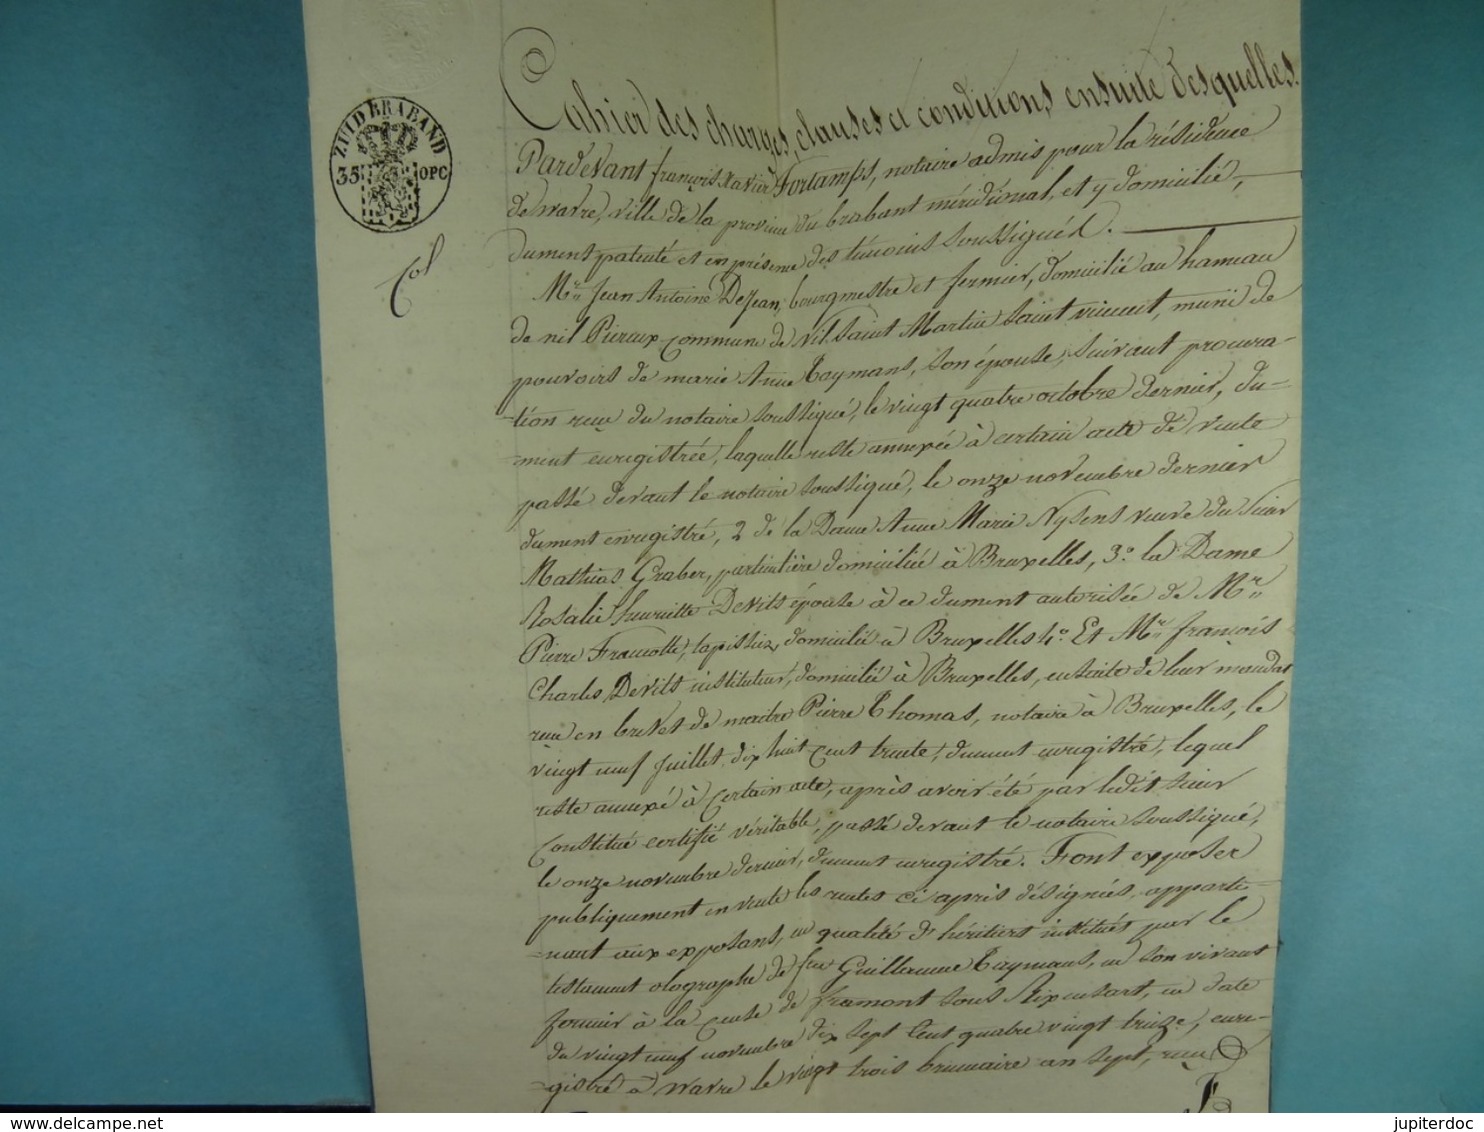 ZUID BRABAND
35 OPC
Col
Cahier des charges, clauses et conditions ensuite desquelles.
Pardevant françois Xavier Fortamps, notaire admis pour la résidence
de wavre, ville de la province du brabant méridional, et y domicilié,
dument patenté et en présence des témoins soussignés.
Mr. Jean Antoine DeJean, bourgmestre et fermier, domicilié au hameau
de nil Pierreux commune de Nil Saint Martin Saint vincent, muni de
pouvoirs de marie Anne Taymans, son épouse, suivant procura-
-tion reçue du notaire soussigné, le vingt quatre octobre dernier, du-
-ment enregistrée, laquelle reste annexée à certain acte de vente
passé devant le notaire soussigné, le onze novembre dernier
dument enregistré, 2 de la Dame Anne Marie Nysens veuve du Sieur
Mathias Graber, particulière domiciliée à Bruxelles, 3.o la Dame
Rosalie henriette Devits épouse à ce dument autorisée de Mr.
Pierre Francotte, tapissier, domicilié à Bruxelles 4.o Et Mr. françois
Charles Devits instituteur, domicilié à Bruxelles, ensuite de leur mandat
reçu en brevet de maitre Pierre Thomas, notaire à Bruxelles, le
vingt neuf juillet dix huit cent trente, dument enregistré, lequel
reste annexé à certain acte, après avoir été par ledit sieur
constitué certifié véritable, passé devant le notaire soussigné,
le onze novembre dernier, dument enregistré. Font exposer
publiquement en vente les rentes ci après désignés, apparte-
-nant aux exposans, en qualité d'héritiers institués par le
testament olographe de feu Guillaume Taymans, en son vivant
fermier à la cense de framont sous Rixensart, en date
du vingt neuf novembre dix sept cent quatre vingt treize, enre-
-gistré à wavre le vingt trois brumaire an sept, reçu
delcampe.net
jupiterdoc